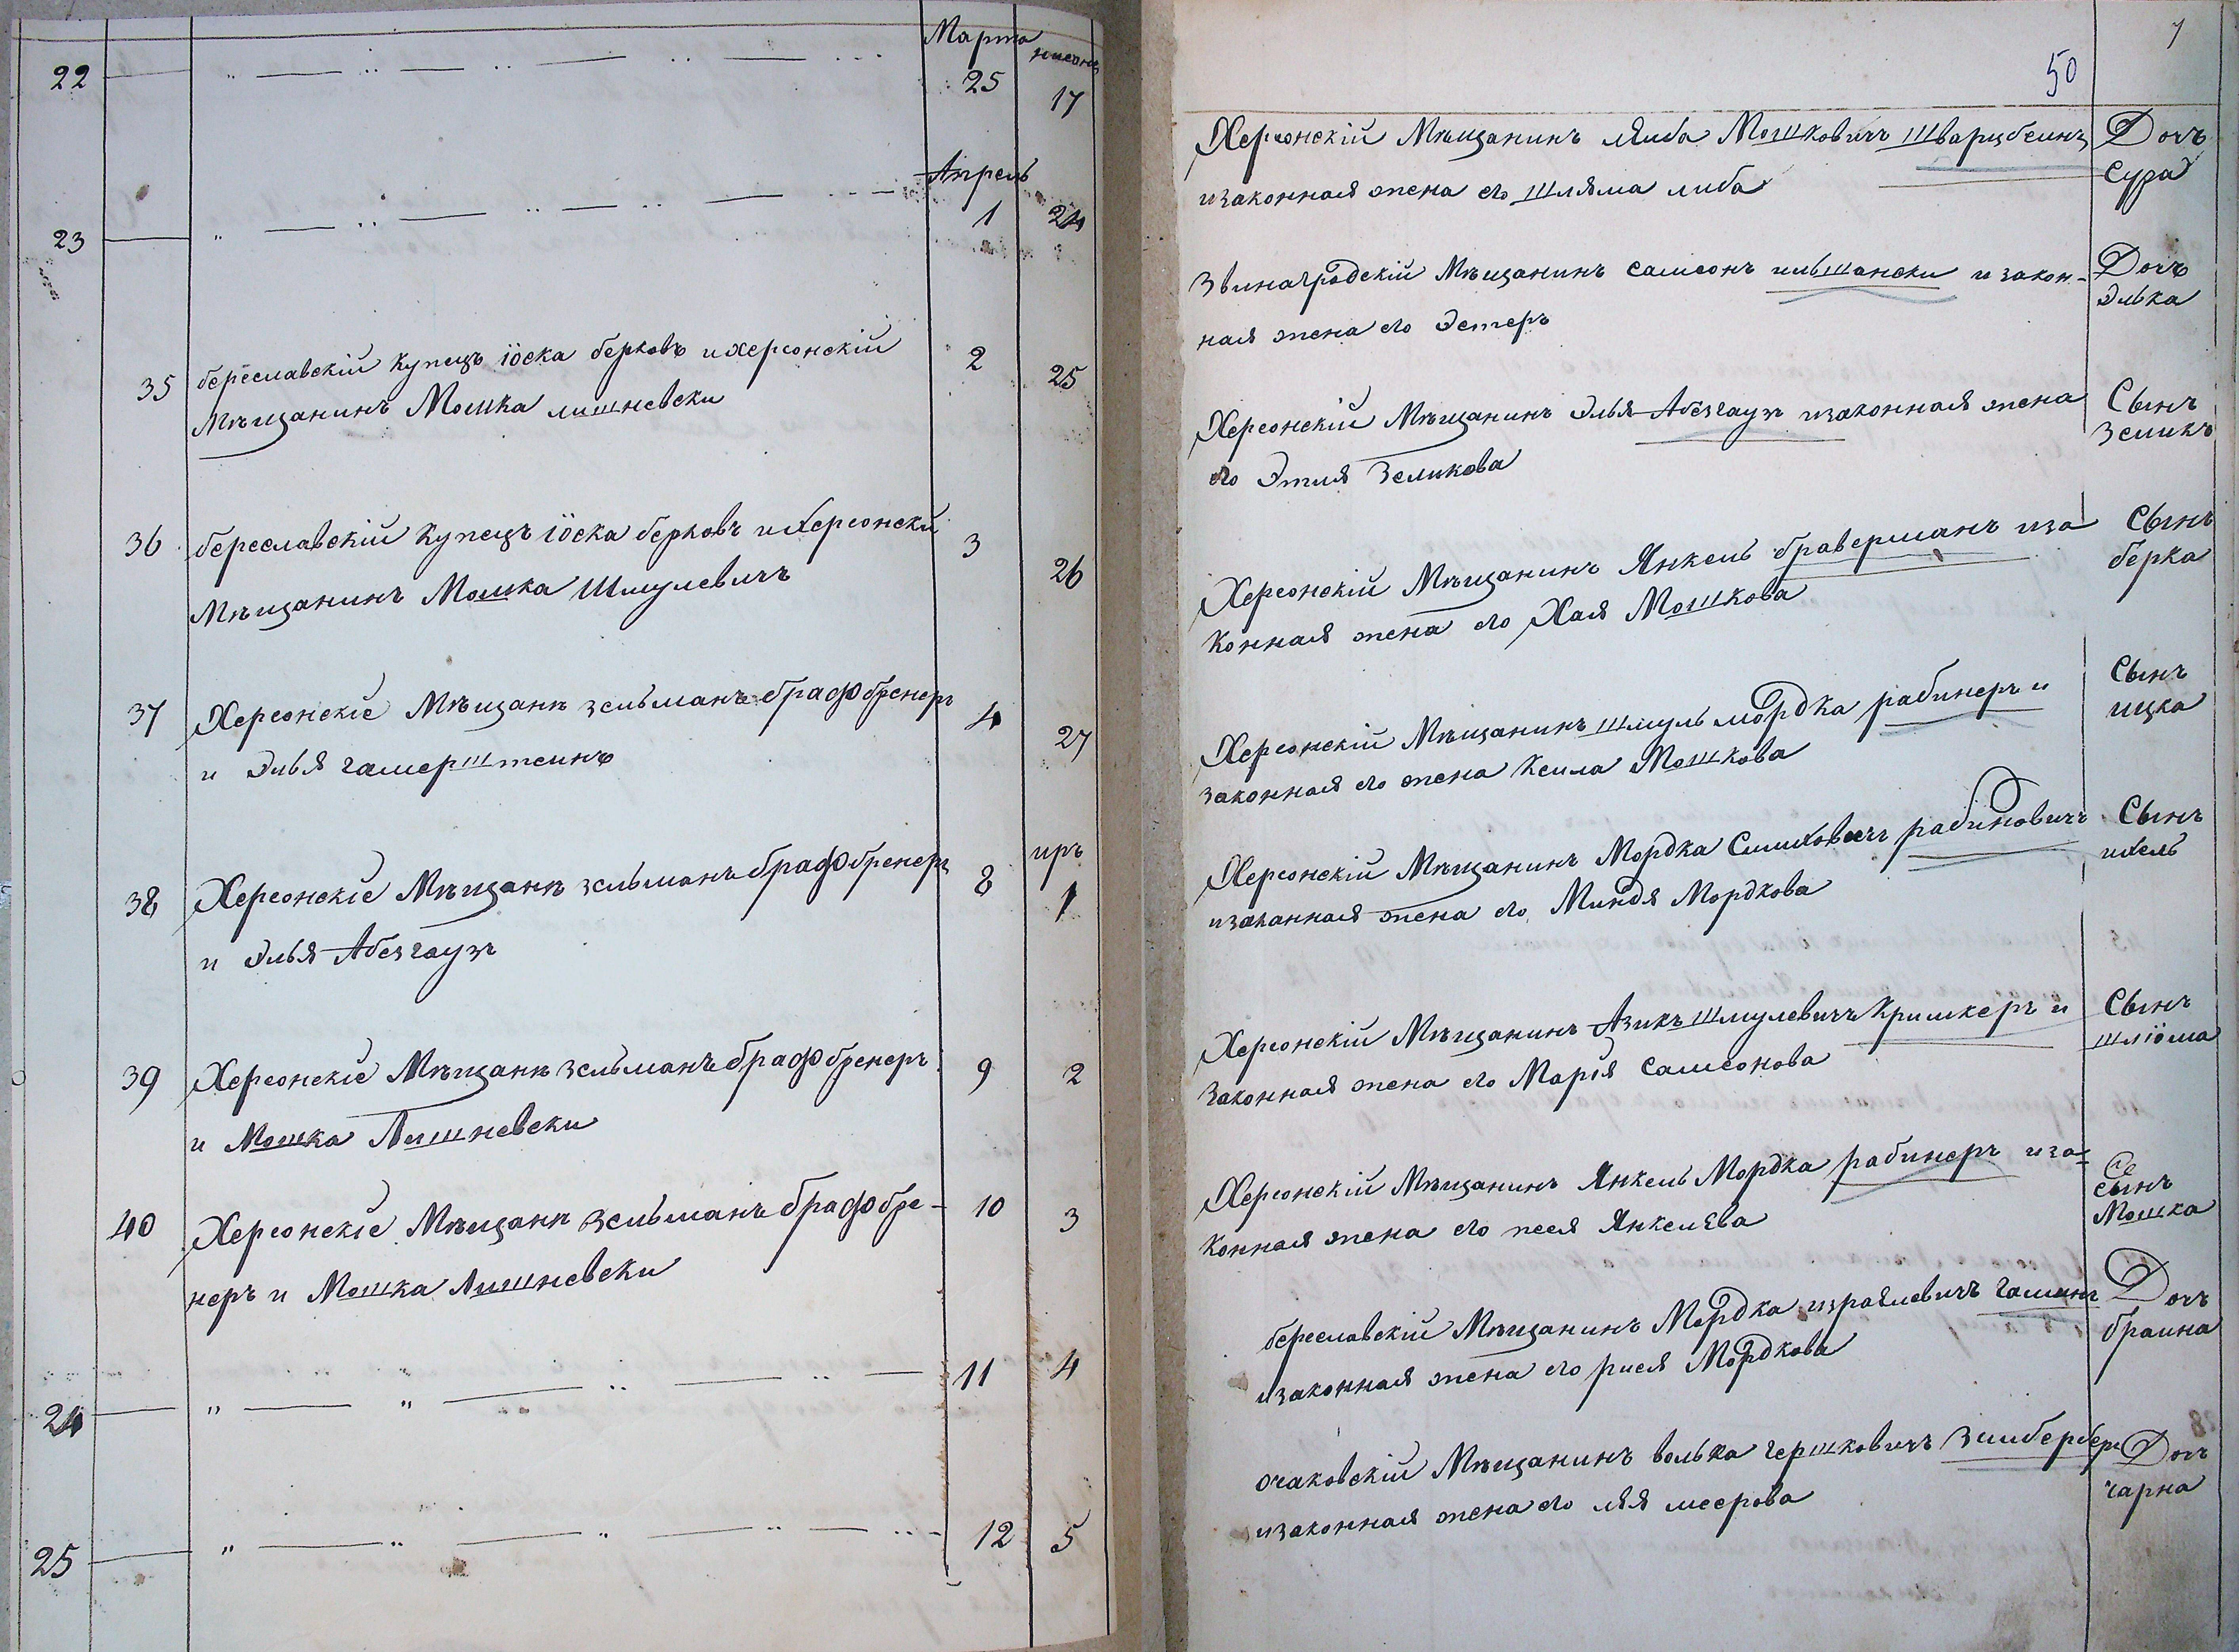 Марта нисонъ
22 25 17
Апрель
23 1 24
35 береславскій купецъ іоска берковъ и херсонскій 2 25
Мѣщанинъ Мошка лишневски
36 береславскій купецъ іоска берковъ и Херсонски 3 26
Мѣщанинъ Мошка Шмулевичъ
37 Херсонскіе Мѣщанѣ зельманъ графбренеръ 4 27
и Элья гамерштеинъ
иръ
38 Херсонскіе Мѣщанѣ зельманъ графбренеръ 8 1
и Элья Абезгаузъ
39 Херсонскіе Мѣщанѣ зельманъ графбренеръ 9 2
и Мошка Лишневски
40 Херсонскіе Мѣщанѣ зельманъ графбре- 10 3
неръ и Мошка Лишневски
24 11 4
25 12 5
7
50
Херсонскій Мѣщанинъ Либа Мошковичъ шварцбеинъ Дочъ
изаконная жена его шляма либа Сура
Звинагродскій Мѣщанинъ самсонъ ильшански и закон- Дочъ
ная жена его Эстеръ Элька
Херсонскій Мѣщанинъ Элья Абезгаузъ изаконная жена Сынъ
его Этля Зеликова Зеликъ
Херсонскій Мѣщанинъ Янкель браверманъ иза Сынъ
конная жена его Хая Мошкова берка
Херсонскій Мѣщанинъ шмуль мордка рабинеръ и Сынъ
законная его жена Кеила Мошкова ицка
Херсонскій Мѣщанинъ Мордка Симховичъ рабиновичъ Сынъ
изаканная жена его Миндя Мордкова ихель
Херсонскій Мѣщанинъ Азикъ шмулевичъ Кришкеръ и Сынъ
Законная жена его Марія самсонова шліома
Херсонскій Мѣщанинъ Янкель Мордка рабинеръ иза- сынъ
конная жена его песя Янкелева Мошка
береславскій Мѣщанинъ Мордка израилевичъ Дочъ
изаконная жена его рися Мордкова браина
очаковскій Мѣщанинъ волька гершковичъ Зилбербергъ Дочъ
изаконная жена его лея меерова чарна